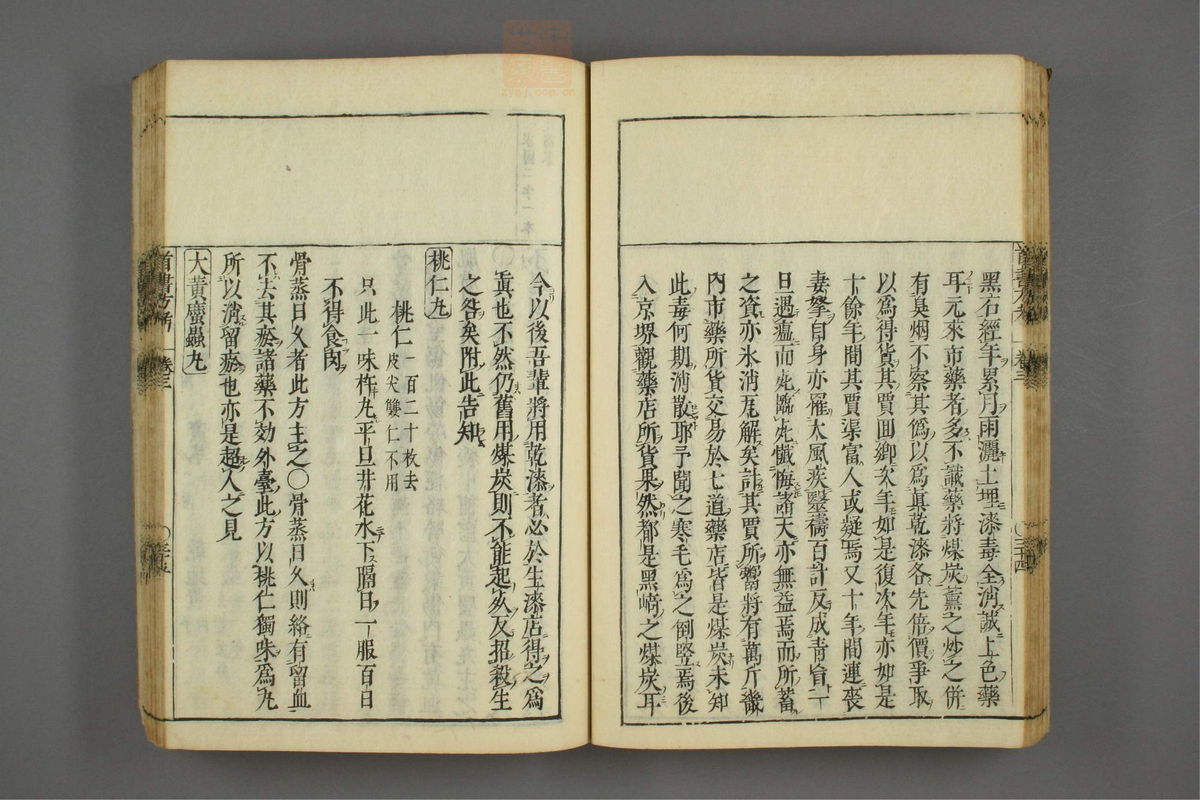 黑石經年累月雨灑土埋漆毒全消誠上色藥
耳元來市藥者多不識藥將煤炭薰之炒之併
有臭烟不察其僞以爲眞乾漆各先倍價爭取
以爲得貨其賈回鄉次年如是復次年亦如是
十餘年間其賈渠富人或疑焉又十年間連喪
妻孥自身亦罹大風疾醫禱百計反成青盲一
旦遇瘟而死臨死懺悔諸天亦無益焉而所蓄
之資亦氷消瓦解矣計其賈所鬻將有萬斤散
內市藥所貨交易於七道藥店皆是煤炭未知
此毒何期消散耶予聞之寒毛爲之倒竪焉後
入京堺觀藥店所貨果然都是黑崎之煤炭耳
今以後吾輩將用乾漆者必於生漆店得之爲
眞也不然仍舊用煤炭則不能起疾反招殺生
之咎矣附此告知
桃仁丸
桃仁一百二十枚去皮尖雙仁不用
只此一味杵丸平旦井花水下膈日一服百日
不得食肉
骨蒸日久者此方主之〇骨蒸日久則絡有留血
不去其瘀諸藥不効外臺此方以桃仁獨味爲丸
所以消留瘀也亦是超人之見
大黃䗪蟲丸
首書方考
卷三
〇三十四
首書方考
卷三